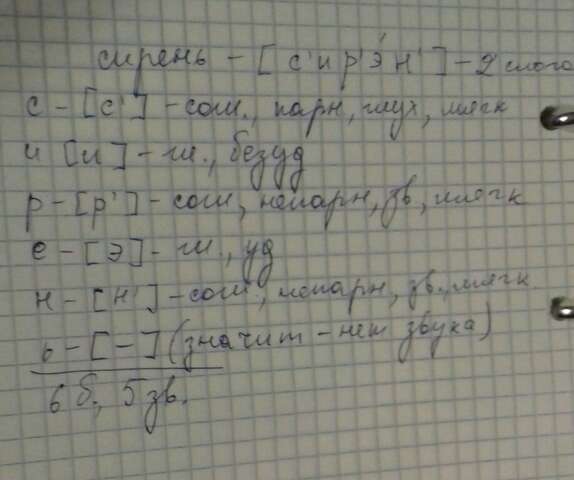 сирень - [с'ир'э́н'] - 2 слога
с - [с'] - согл., парн, глух, мягк
и [и] - гл., безуд
р - [р'] - согл, непарн, зв, мягк
е - [э] - гл., уд
н - [н'] - согл, непарн, зв., мягк
ь - [-] (значит - нет звука)
6 б., 5 зв.